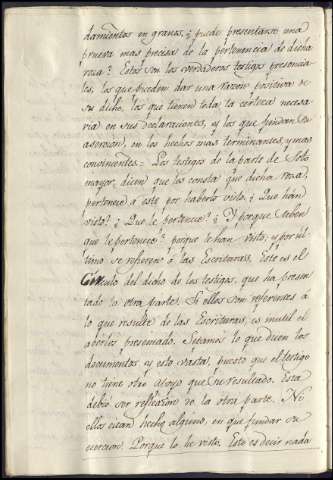 damientos en graves, ¿puede presentarse una
prueba mas precisa de la pertenencia de dicha
roza? Estos son los verdaderos testigos presencia-
les, los que pueden dar una razon positiva de
su dicho, los que tienen toda la certeza necesa-
ria en sus declaraciones, y los que fundan su
asercion, en los hechos mas terminantes, y mas
convincentes = Los testigos de la parte de Soto
mayor, dicen que les consta que dicha roza,
pertenece á este por haberlo visto ¿ Que han
visto? ¿ Que le pertenece? ¿ Y porque saben
que le pertenece? porque le han visto; y por ul-
timo se refieren á las Escrituras. Este es el
Circulo del dicho de los testigos, que ha presen-
tado la otra parte. Si ellos son referentes á
lo que resulte de las Escrituras, es inutil el
aberlos presentado. Sepamos lo que dicen los
documentos, y esto vasta, puesto que el testigo
no tiene otro apoyo que su resultado. Esta
debió ser reflexion de la otra parte. Ni
ellos citan hecho alguno, en que fundar su
asercion. Porque lo he visto. Esto es decir nada